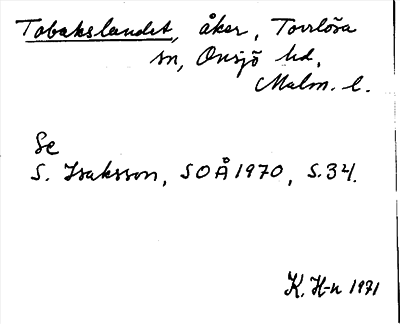 Tobakslandet, åker, Torrlösa
sn, Onsjö hd,
Malm. l.
Se
S. Isaksson, SOÅ 1970, S. 34.
K. H-n 1971